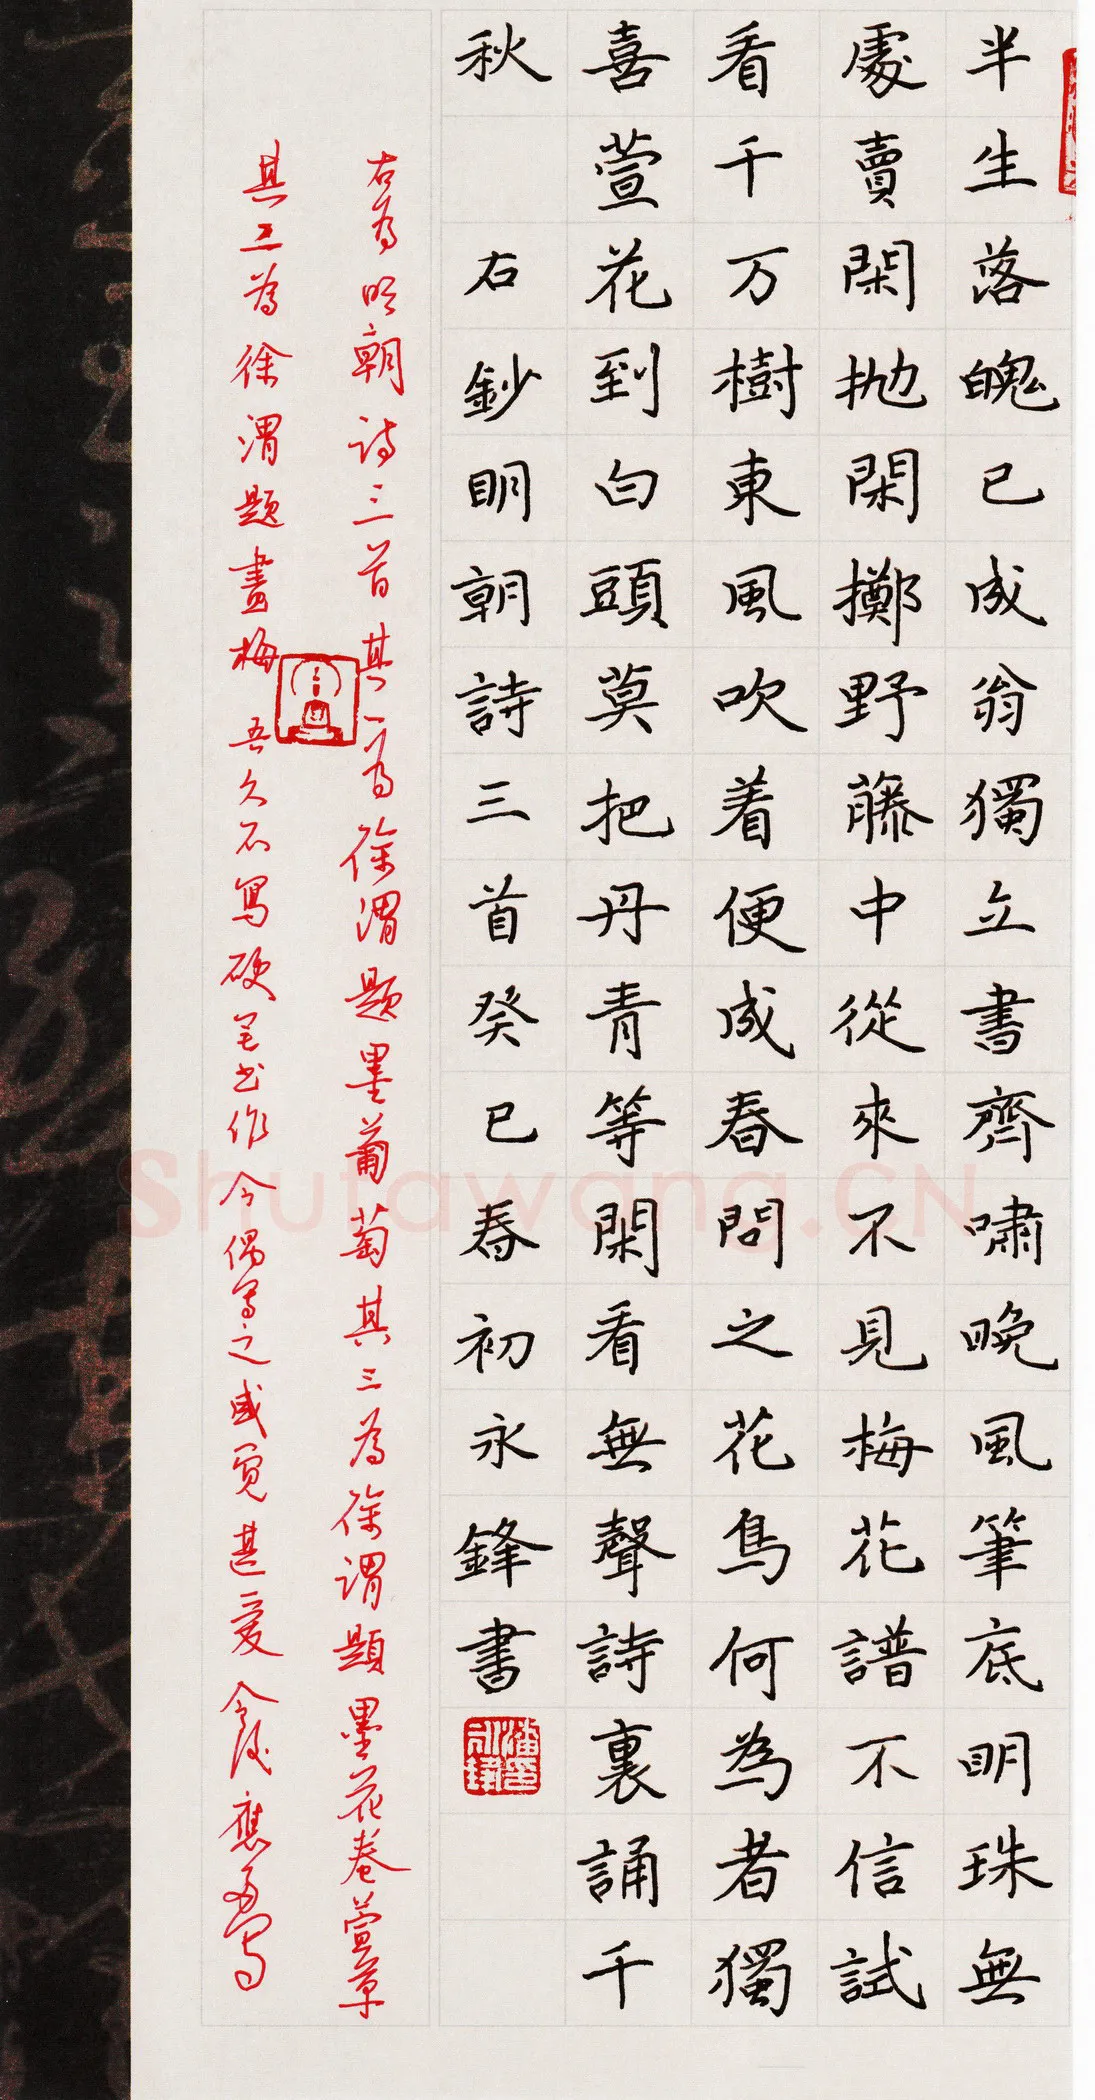 半生落魄已成翁獨立書齊嘯晚風筆底明珠無
處賣閑抛閑擲野藤中從來不見梅花譜不信試
看千万樹東風吹着便成春問之花鳥何為者獨
喜萱花到白頭莫把丹青等閑看無聲詩裏誦千
秋 右鈔明朝詩三首癸巳春初永鋒書
右為明朝詩三首其一為徐渭題墨葡萄其三為徐渭題墨花卷萱草
其二為徐渭題畫梅 吾久不寫硬筆書作今偶寫之感覺甚
Shufawang.CN